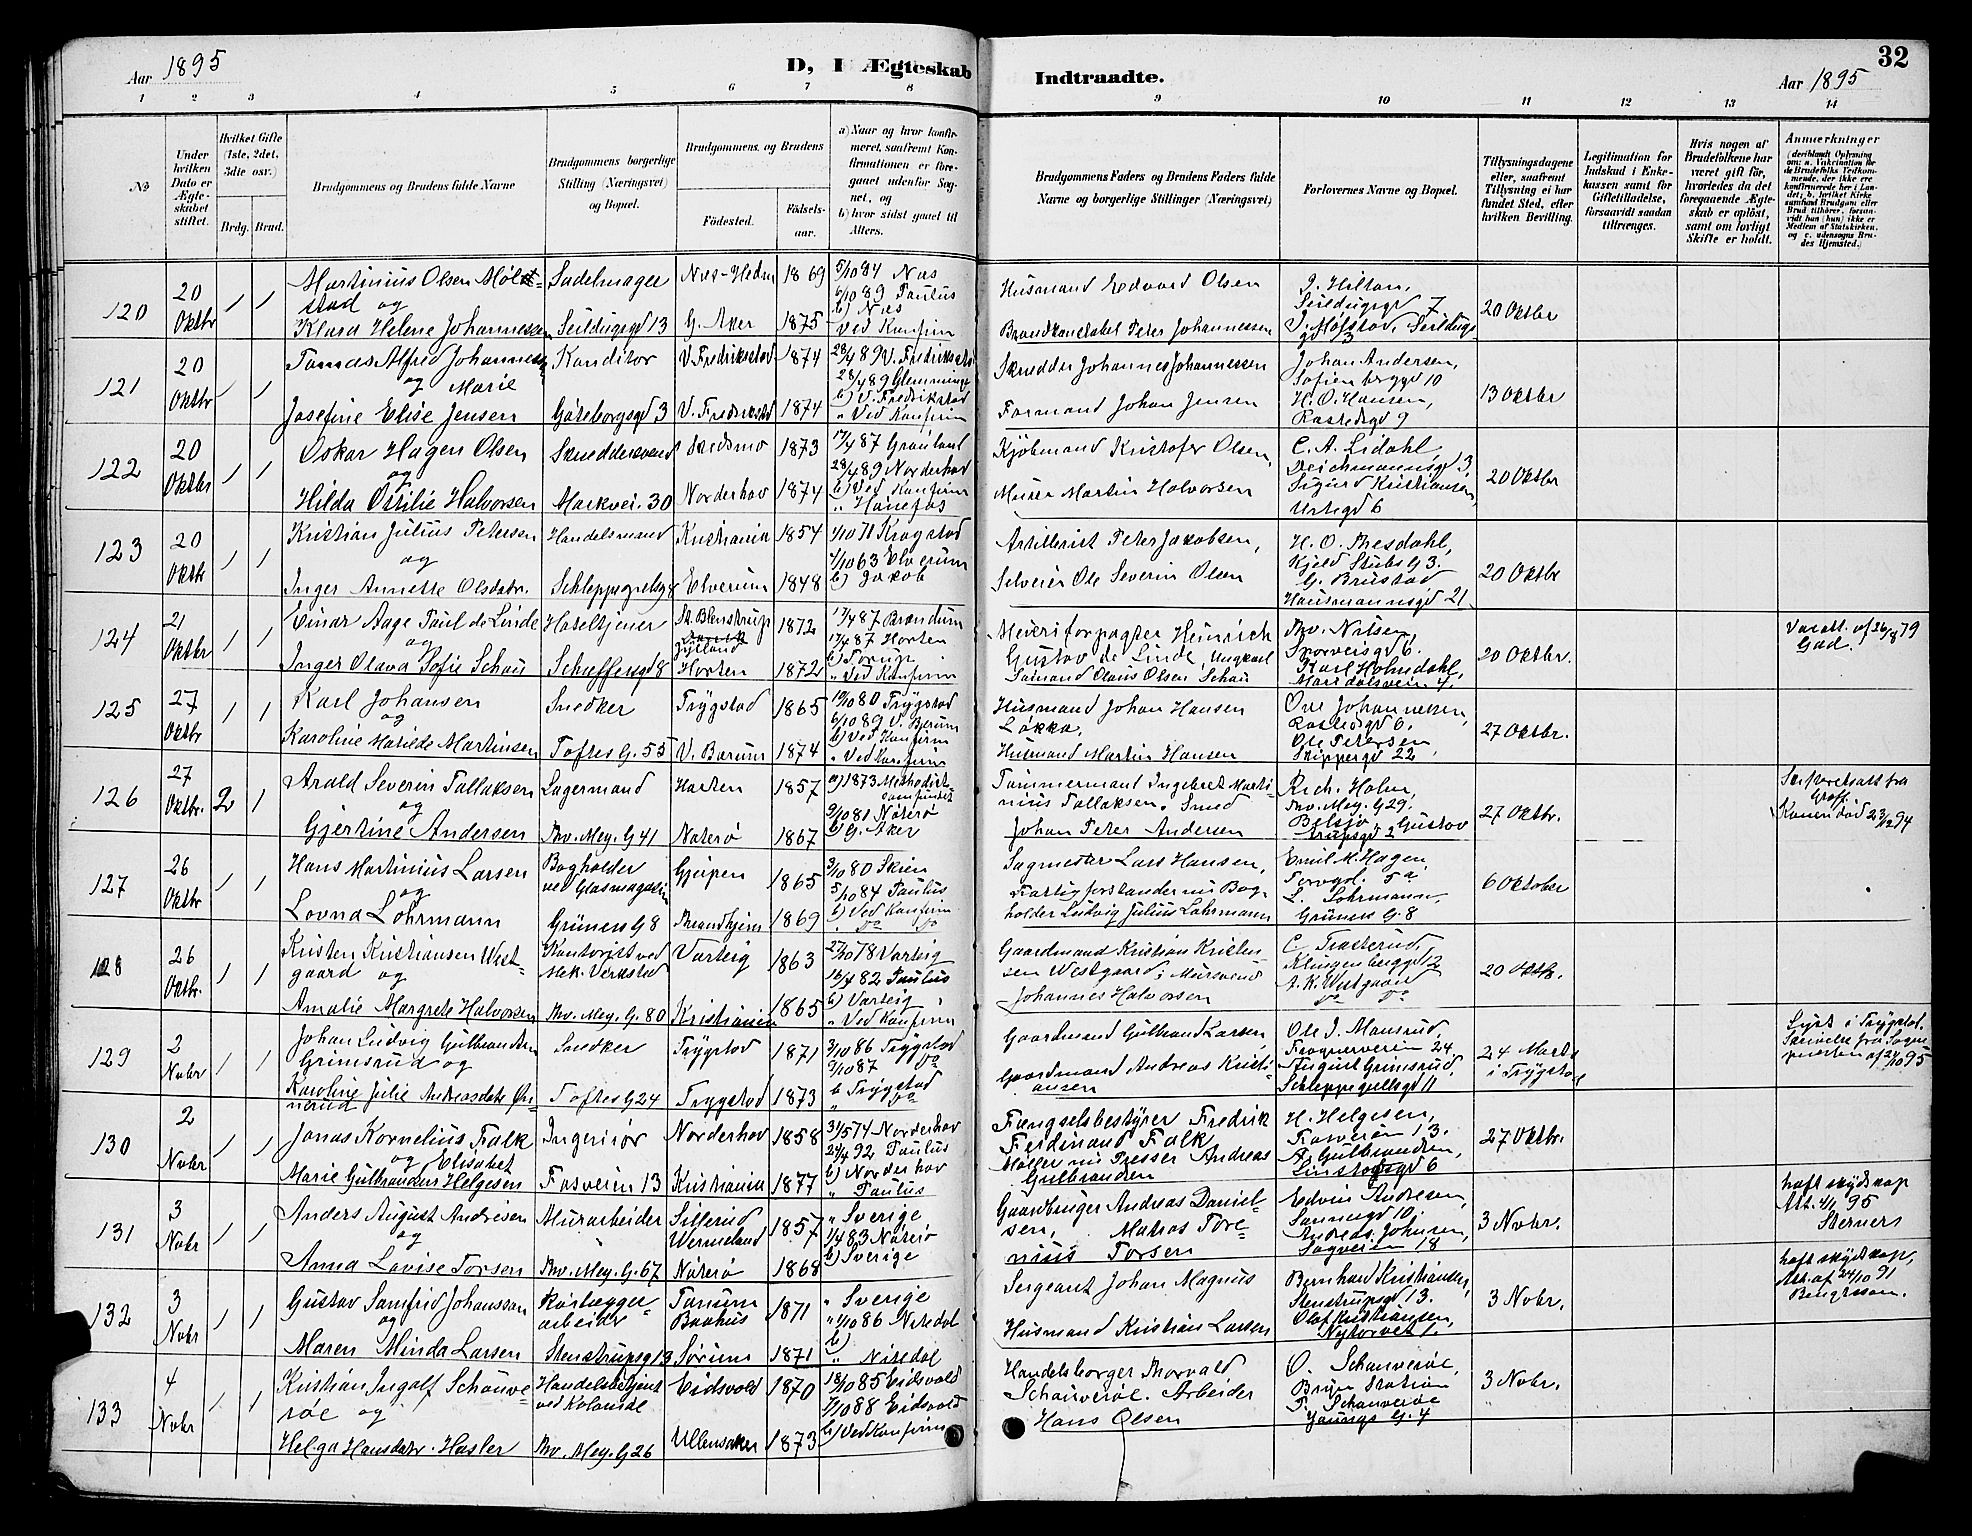 Aar 1895
D, I Ægteskab
Indtraadte.
Aar 1895
32
1 2 3 4 5 6 7 8 9 10 11 12 13 14
No
Under hvilken Dato er Ægteskabet stiftet.
Hvilket Gifte (1ste, 2det, 3dte osv.)
Brdg. Brud.
Brudgommens og Brudens fulde Navne
Brudgommens borgerlige Stilling (Næringsvei) og Bopæl.
Brudgommens og Brudens
Fødested.
Fødselsaar.
a) Naar og hvor konfirmeret, saafremt Konfirmationen er foregaaet udenfor Sognet, og
b) hvor sidst gaaet til Alters.
Brudgommens Faders og Brudens Faders fulde Navne og borgerlige Stillinger (Næringsvei)
Forlovernes Navne og Bopæl.
Tillysningsdagene eller, saafremt Tillysning ei har fundet Sted, efter hvilken Bevilling.
Legitimation for Indskud i Enkekassen samt for Giftetilladelse, forsaavidt saadan tiltrænges.
Hvis nogen af Brudefolkene har været gift før, hvorledes da det foregaaende Ægteskab er opløst, samt om lovligt Skifte er holdt.
Anmerkninger
120
20 Oktbr
1 1
Martinius Olsen Mølstad og
Klara Helene Johannessen
Sadelmager
Seildugsgd 13
Næs-Hedm
G. Aker
1869
1875
5/10 84 Næs
6/10 89 Paulus
b) Næs
Ved Konfirm
Husmand Edvard Olsen
Brandkonstabel Peter Johannessen
J. Hilton,
Seildugsgd 7
J. Mølstad, Seildugsgd 13
20 Oktbr
121
20 Oktbr
1 1
Tomas Alfred Johannessen
og Marie
Josefine Elise Jensen
Konditor
Gøteborgsgd 3
V. Fredrikstad
V. Fredrikstd
1874
1874
28/4 89 V. Fredrikstd
28/4 89 Glemminge
b) V. Fredrikstad
" Ved Konfirm
Skredder Johannes Johannessen
Formand Johan Jensen
Johan Andersen,
Sofienberggd 10
H. O. Hansen,
Rastedsgd 9
13 Oktbr
122
20 Oktbr
1 1
Oskar Hagen Olsen
og
Hilda Otilie Halvorsen
Skreddersvend
Markvei. 30
Skedsmo
Norderhov
1873
1874
17/4 87 Grønland
28/4 89 Norderhov
b) Ved Konfirm
" Hønefos
Kjøbmand Kristofer Olsen,
Murer Martin Halvorsen
C. A. Lidahl,
Deichmannsgd 3,
Sigurd Kristiansen,
Urtegd 6
20 Oktbr
123
20 Oktbr
1 1
Kristian Julius Petersen
og
Inger Annette Olsdatr.
Handelsmand
Schleppegrellsg
Kristiania
Elverum
1854
1848
1/10 71 Kragstad
1/10 63 Elverum
b) Jakob
Artillerist Peter Jakobsen,
Selveier Ole Severin Olsen
H. O. Bresdahl,
Kjeld Stubsg 3.
G. Brustad
Hausmannsgd 21
20 Oktbr
124
21 Oktbr
1 1
Einar Aage Paul de Linde
og
Inger Olava Sofie Schau
Hoteltjener
Scheffersgd 8
St. Blenstrup
Jylland
Horten
1872
1872
17/4 87 Brøndum
17/4 87 Horten
b) Torup
" Ved Konfirm
Meieriforpagter Heinrich
Gustav de Linde, Ungkarl
Sømand Olaus Olsen Schau
Thv. Nilsen
Sporveisgd 6.
Karl Holmdahl,
Maridalsveien 4.
20 Oktbr.
Vacatt. af 26/8 79
Gad.
125
27 Oktbr
1 1
Karl Johansen
og
Karoline Mathilde Martinsen
Snedker
Toftes G. 55
Trygstad
V. Bærum
1865
1874
10/10 80 Trygstad
6/10 89 V. Bærum
b) Ved Konfirm
" Ved Konfirm
Husmand Johan Hansen
Løkka,
Husmand Martin Hansen
Ove Johannessen,
Rastedsgd 6.
Ole Petersen
Skippergd 22.
27 Oktbr.
126
27 Oktbr.
2 1
Arald Severin Tallaksen
og
Gjertine Andersen
Lagermand
Thv. Mey. G 41
Horten
Nøterø
1857
1867
a) 1873 Methodist
samfundet
2/10 81 Nøterø
b) G. Aker
Tømmermand Ingebret Martinius Tallaksen. Smed
Johan Peter Andersen
Rich. Holm,
Thv. Mey. G 29.
27 Oktbr.
Skifteretsatt fra
Konen død 23/12 94
127
26 Oktbr
1 1
Hans Martinius Larsen
og
Lovna Lohrmann
Bogholder
ved Glasmagasin
Grüners G 8
Gjerpen
Trondhjem
1865
1869
3/10 80 Skien
5/10 84 Paulus
b) Ved Konfirm
" do do
Sagmester Lars Hansen,
Fattigforstander nu Bogholder Ludvig Julius Lohrmann
Emil M. Hagen
L. Lohrmann,
Grüners G. 8
6 Oktober
128
26 Oktbr.
1 1
Kristen Kristiansen Westgaard og
Amalie Margrete Halvorsen
Kontorist ved
Mek. Verksted
Thv. Mey. G. 80
Varteig
Kristiania
1863
1865
27/10 78 Varteig
16/4 82 Paulus
b) Varteig
" Ved Konfirm
Gaardmand Kristian Kristensen Westgaard, Mursvend
Johannes Halvorsen
C. Trosterud,
Klingenberggd 2
A. K. Westgaard
do do
20 Oktb.
129
2 Novbr
1 1
Johan Ludvig Gulbrandsen
Grimsrud og
Karoline Julie Andreasdatr
Snedker
Toftes G 24
Trygstad
Trygstad
1871
1873
3/10 86 Trygstad
2/10 87 do
b Trygstad
" do
Gaardmand Gulbrand Larsen,
Gaardmand Andreas Kristiansen
Ole J. Mansrud,
Frognerveien 24.
August Grimsrud,
Schleppegrellsgd 11
24 Marts
i Trygstad
Lyst i Trygstad.
Skrivelse fra Sognepresten af 24/10 95
130
2 Novbr
1 1
Jonas Kornelius Falk
og Elisabet
Marie Gulbrandsen Helgesen
Ingeniør
Fosveien 13
Norderhov
Kristiania
1858
1877
31/5 74 Norderhov
24/4 92 Paulus
b) Norderhov
" Paulus
Fængselsbestyrer Fredrik
Ferdinand Falk
Møller nu Presser Andreas
Gulbrandsen
H. Helgesen,
Fosveien 13.
A. Gulbrandsen,
Linstowsgd 6
27 Oktbr.
131
3 Novbr
1 1
Anders August Andresen
og
Anna Lovise Torsen
Murarbeider
Thv. Mey. G. 67
Sillerud
Wermeland
Nøterø
1857
1868
" Sverige
1/4 83 Nøterø
b) Sverige
Gaardbruger Andreas Danielsen, Matros Torenius Torsen
Edvin Andresen,
Sannergd 10.
Andreas Johnsen,
Sagveien 18
3 Novbr.
haft skydskop
Att. 4/1 95
Sterner
132
3 Novbr
1 1
Gustav Samfrid Johansson
og
Maren Minda Larsen
Rørlæggerarbeider
Stenstrupsg 13
Tanum
Baahus
Sørum
1871
1871
" Sverige
" 1/10 86 Nitedal
b)
" Nitedal
Sergeant Johan Magnus
Husmand Kristian Larsen
Bernhard Kristiansen,
Stenstrupsgd 13.
Olaf Kristiansen,
Nytorvet 1.
3 Novbr.
haft skydskop,
Att. af 24/10 91
Bengtsson.
133
4 Novbr
1 1
Kristian Ingolf Schouverøe og
Helga Hansdatr. Hasler
Handelsbetjent
ved Kolonial
Thv. Mey. G 26
Eidsvold
Ullensaker
1870
1873
18/10 85 Eidsvold
7/10 88 Eidsvold
b) Ved Konfirm
Handelsborger Thorvald
Schouverøe. Arbeider
Hans Olsen
O. Schouverøe,
Bryn Station
F. Schouverøe
Youngs G. 4
3 Novbr.